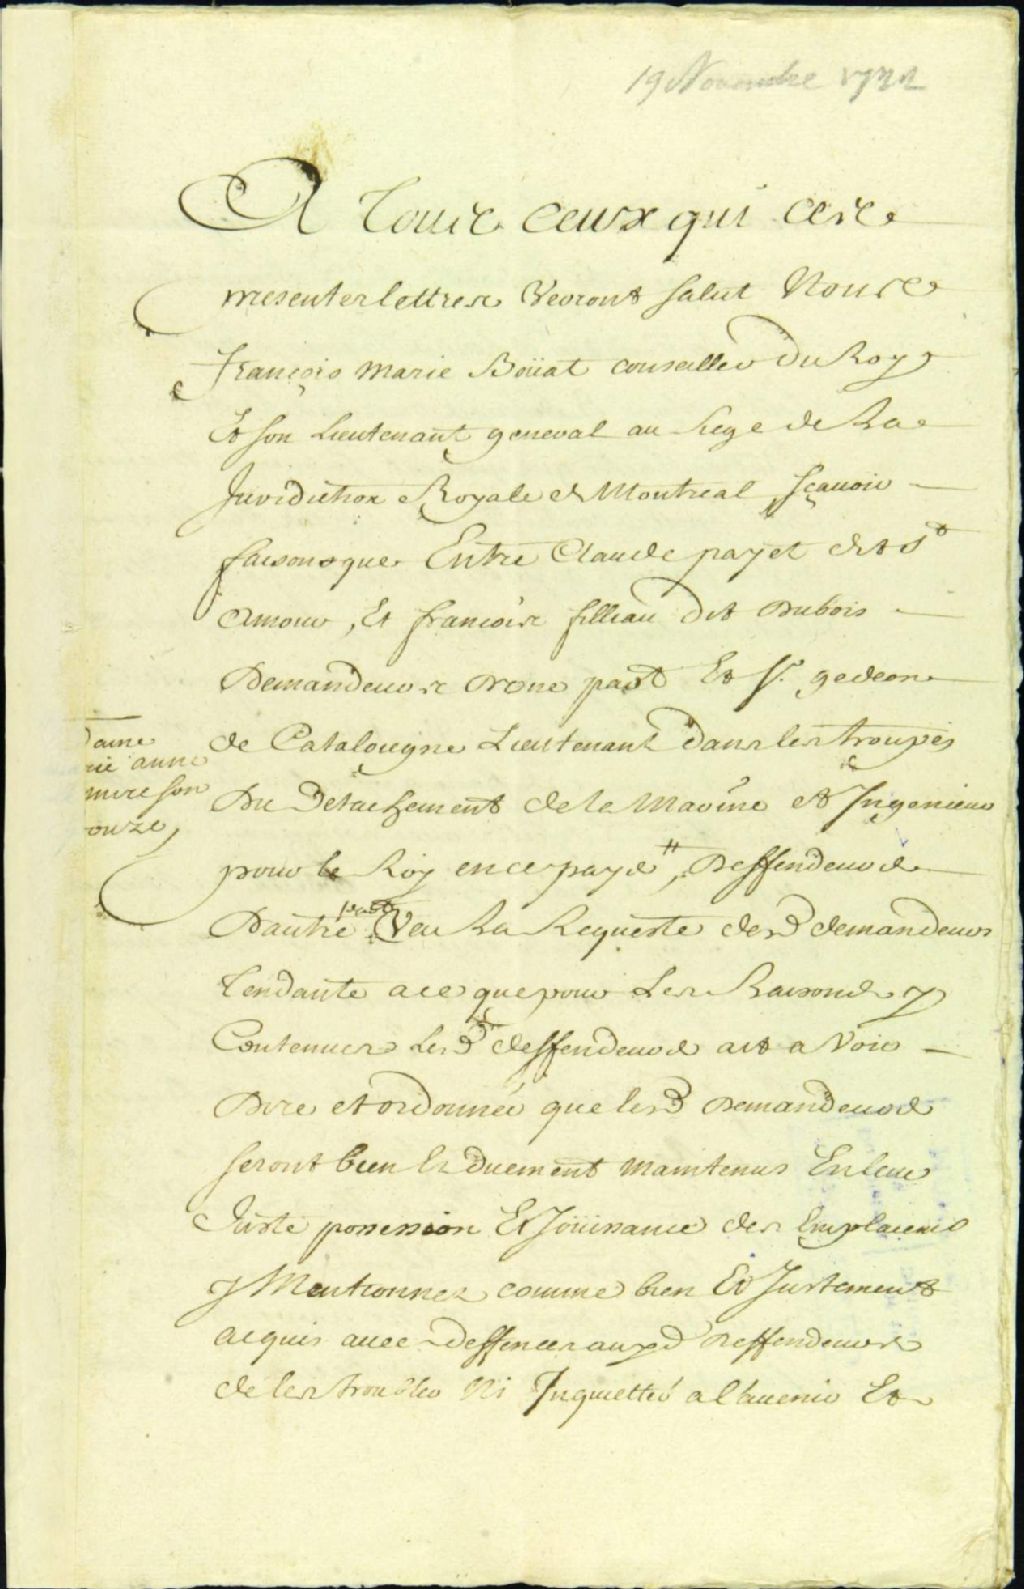 19 Novembre
A Tous ceux qui ces
presentes lettres Verront Salut Nous
François Marie Boüat conseiller Du Roy
Et son Lieutenant general au siege de La
Jurisdiction Royale de Montreal sçauoir
faisons que Entre Claude payet dit St
Amour, Et françois filleau dit Dubois
Demandeurs D'one part Et Sr. gedeon
de Catalougne Lieutenant dans les troupes
Du Detachement de la Marine et Ingenieur
pour le Roy en ce pays #, Deffendeurs
Dautre part Veu La Requeste desd demandeurs
Tendante a ce que pour Les Raisons y
Contenues Lesd deffendeurs ait a Voir
Dire et ordonnée que lesd Demandeurs
seront bien Et Duement Maintenus En leur
Juste possession Et Joüissance des Emplacemts
y Mentionnez comme bien Et Justement
acquis auec deffences auxd Deffendeurs
de les troubler Ni Inquietter a l'auenir Et
Dame
anne
mire son
ouze